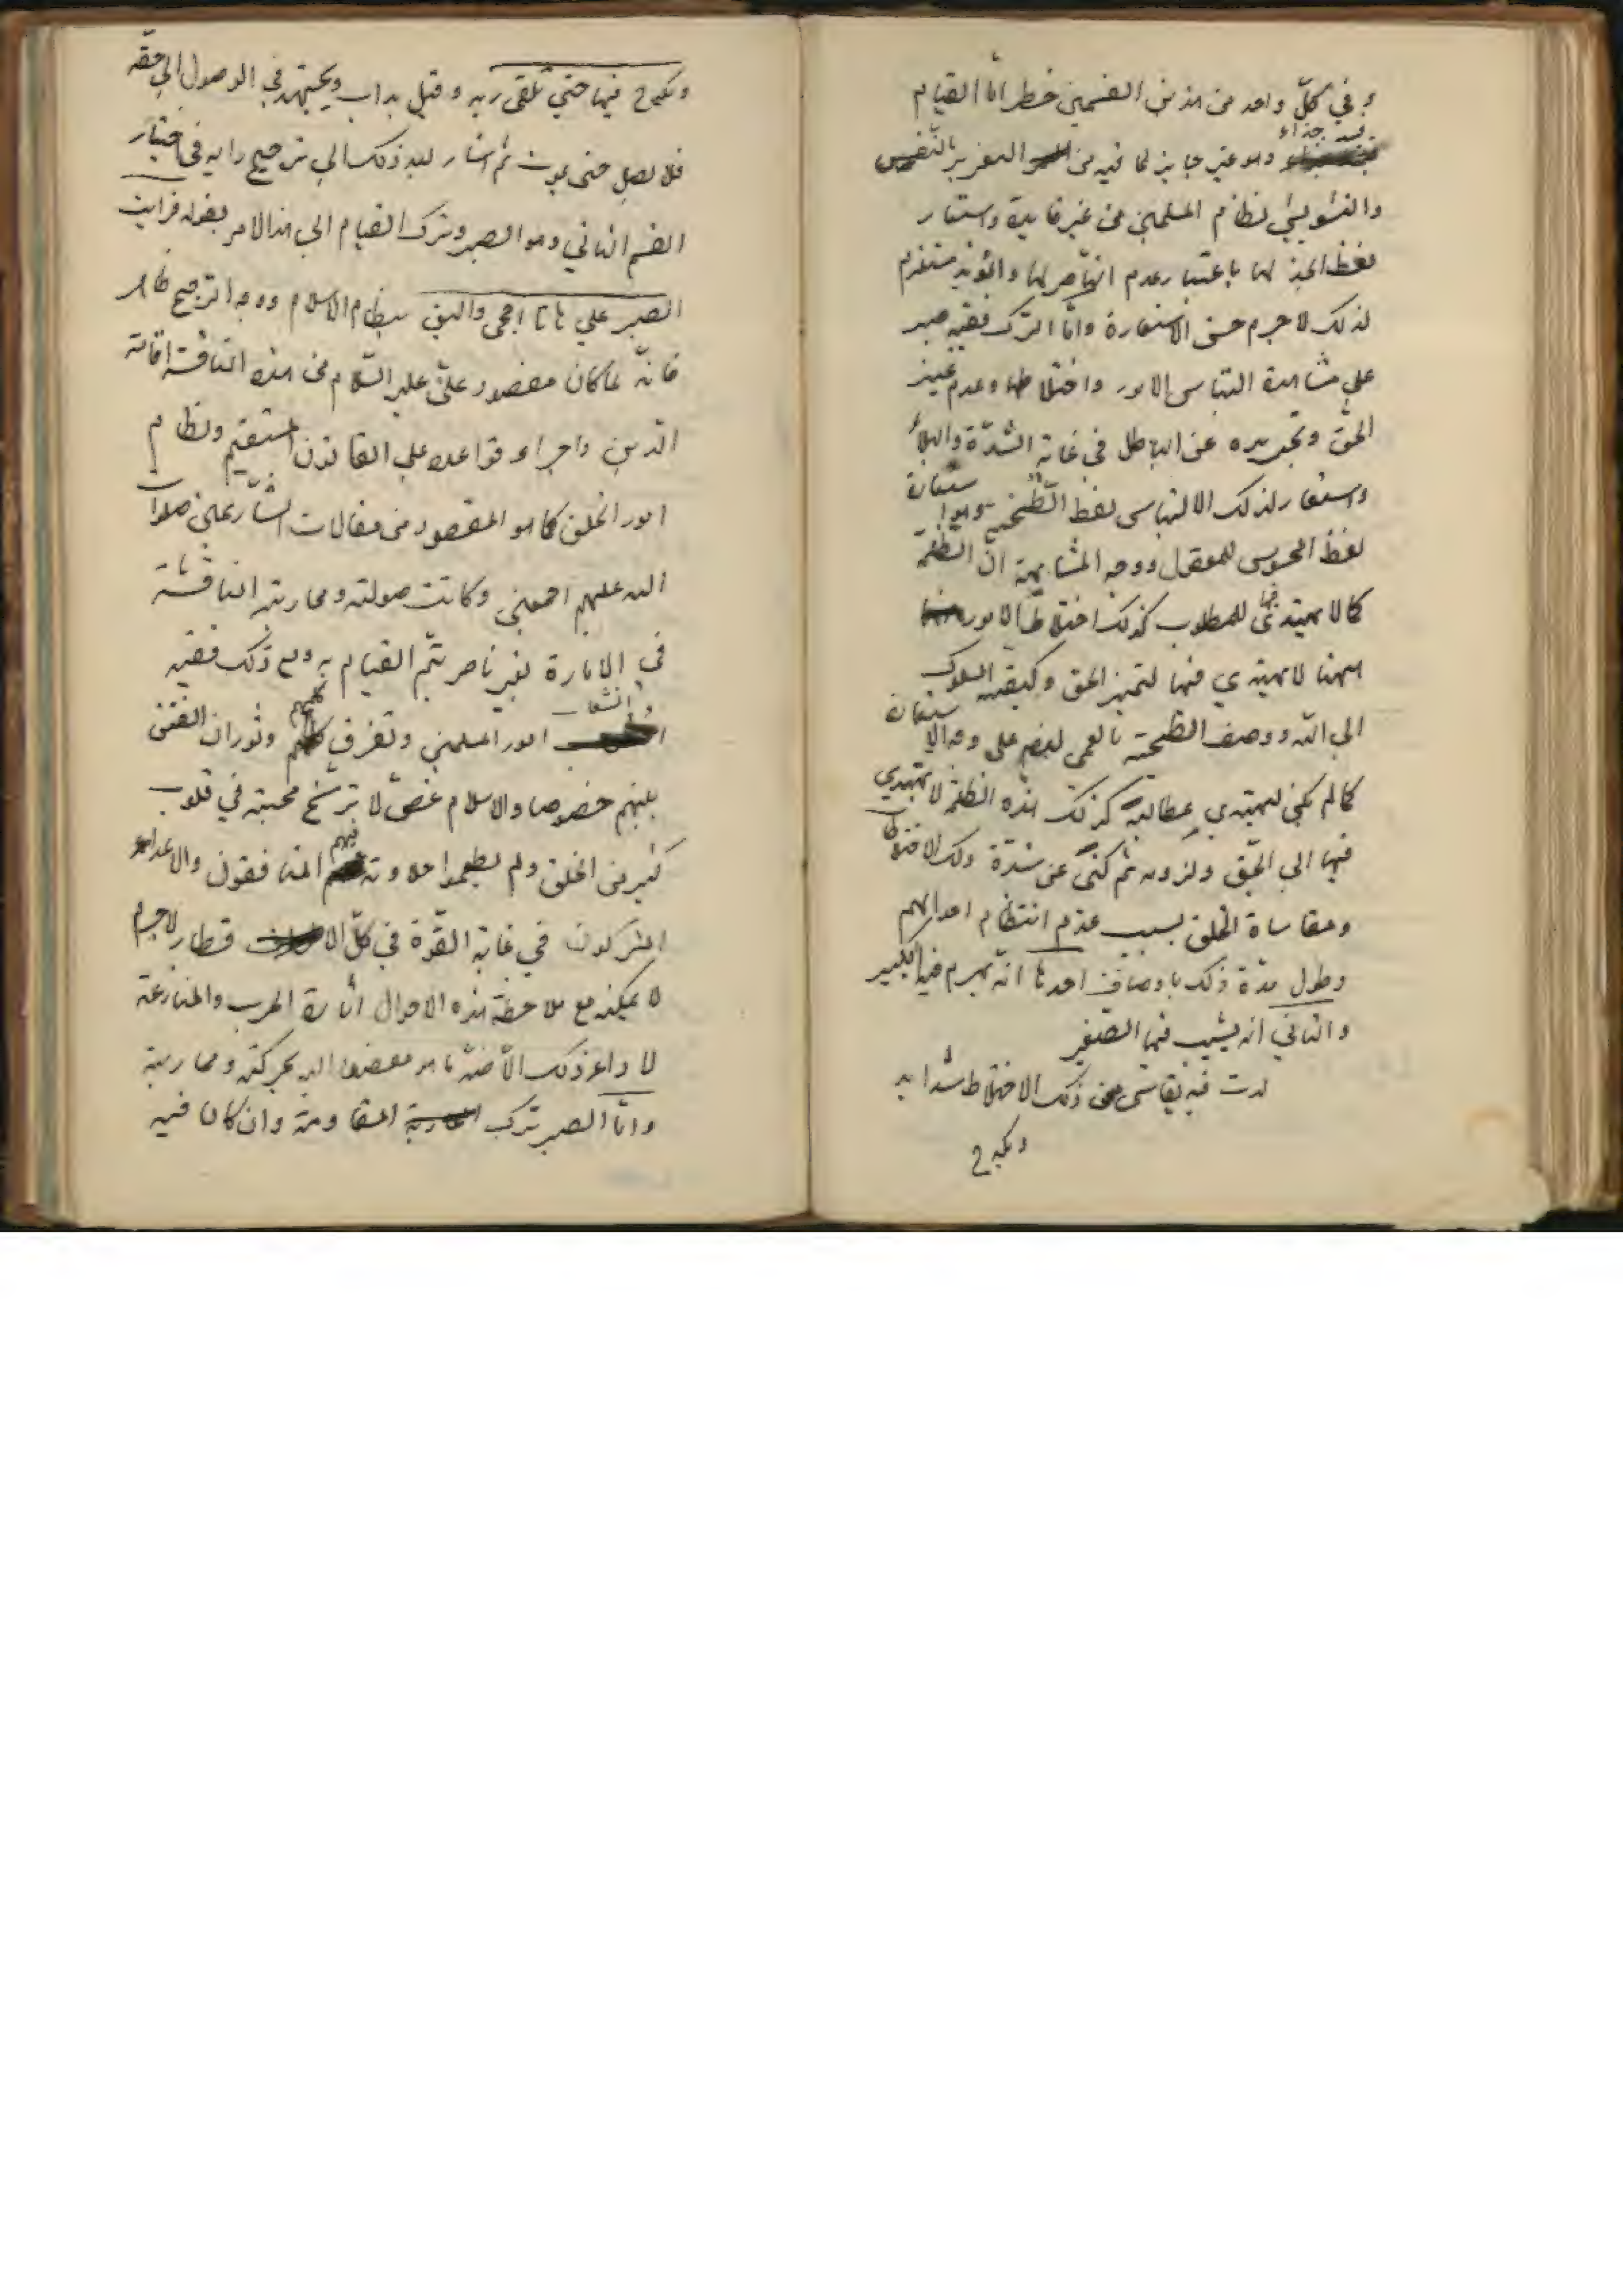 وفي كلّ واحد من هذين القسمين خطر امّا القيام
بيد جذاء وهو غير جايز لما فيه من التغرير بالنفس
والتشويش لنظام المسلمين من غير فايدة واستعار
لفظ الجذ لها باعتبار عدم الناصر لها والمؤيد مستلزم
لذلك لا جرم حسن الاستعارة وامّا الترك ففيه صبر
على مشاهدة التباس الامور واختلاطها وعدم تمييز
الحقّ وتجريده عن الباطل في غاية الشدّة والبلاء
واستعار لذلك الالتباس لفظ الطخية وهو استعارة
لفظ المحسوس للمعقول ووجه المشابهة انّ الظلمة
كما لا يهتدى فيها للمطلوب كذلك اختلاط الامور
ههنا لا يهتدي فيها لتميز الحق وكيفية السلوك
الى الله ووصف الطخية بالعمى ايضم على وجه الاستعارة
كما لم يكن ليهتدي لمطالبه كذلك هذه الظلمة لا تهتدي
فيها الى الحقّ ولزومه ثم كنى عن شدّة ذلك الاختلاط
ومقاساة الخلق بسبب عدم انتظام احوالهم
وطول مدّة ذلك باوصاف احدها انّه يهرم فيها الكبير
والثاني انه يشيب فيها الصغير
فيه يقاسى من ذلك الاختلاط شدايد
ويكدح
ويكدح فيها حتى يلقى ربه وقيل يداب ويجتهد في الوصول الى حقه
فلا يصل حتى يموت ثم اشار بعد ذلك الى ترجيح رايه في اختيار
القسم الثاني وهو الصبر وترك القيام الى هذا الامر بقوله فرايت
الصبر على هاتا احجى واليق بنظام الاسلام ووجه الترجيح ظاهر
فانّه لما كان مقصود علىّ عليه السّلام من هذه المنافسة اقامة
الدين واجراء قواعده على القانون المستقيم ونظام
امور الخلق كما هو المقصود من مقالات الشارعين صلوات
الله عليهم اجمعين وكانت صولته ومحاربته المنافسة
في الامارة لغير ناصر يتم القيام به ومع ذلك ففيه
انشعاب امور المسلمين وتفرق كلمتهم وثوران الفتن
بينهم خصوصا والاسلام غضّ لا ترسّخ محبته في قلوب
كثير من الخلق ولم يطعموا حلاوته فيهم المنافقون والاعداء
المشركون في غاية القوّة في كلّ الاقطار لا جرم
لا يمكنه مع ملاحظة هذه الاحوال اثارة الحرب والمنازعة
لا داعى ذلك الا ضدّ ما هو مقصود اليه بحركته ومحاربته
وامّا الصبر وترك المقاومة وان كان فيه